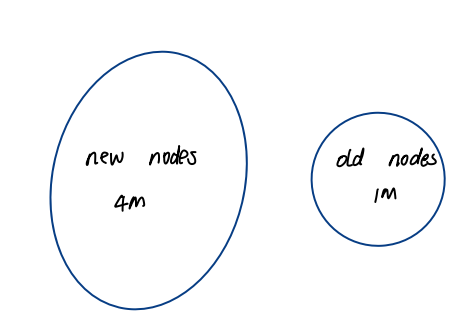 new nodes
4m
old nodes
1M